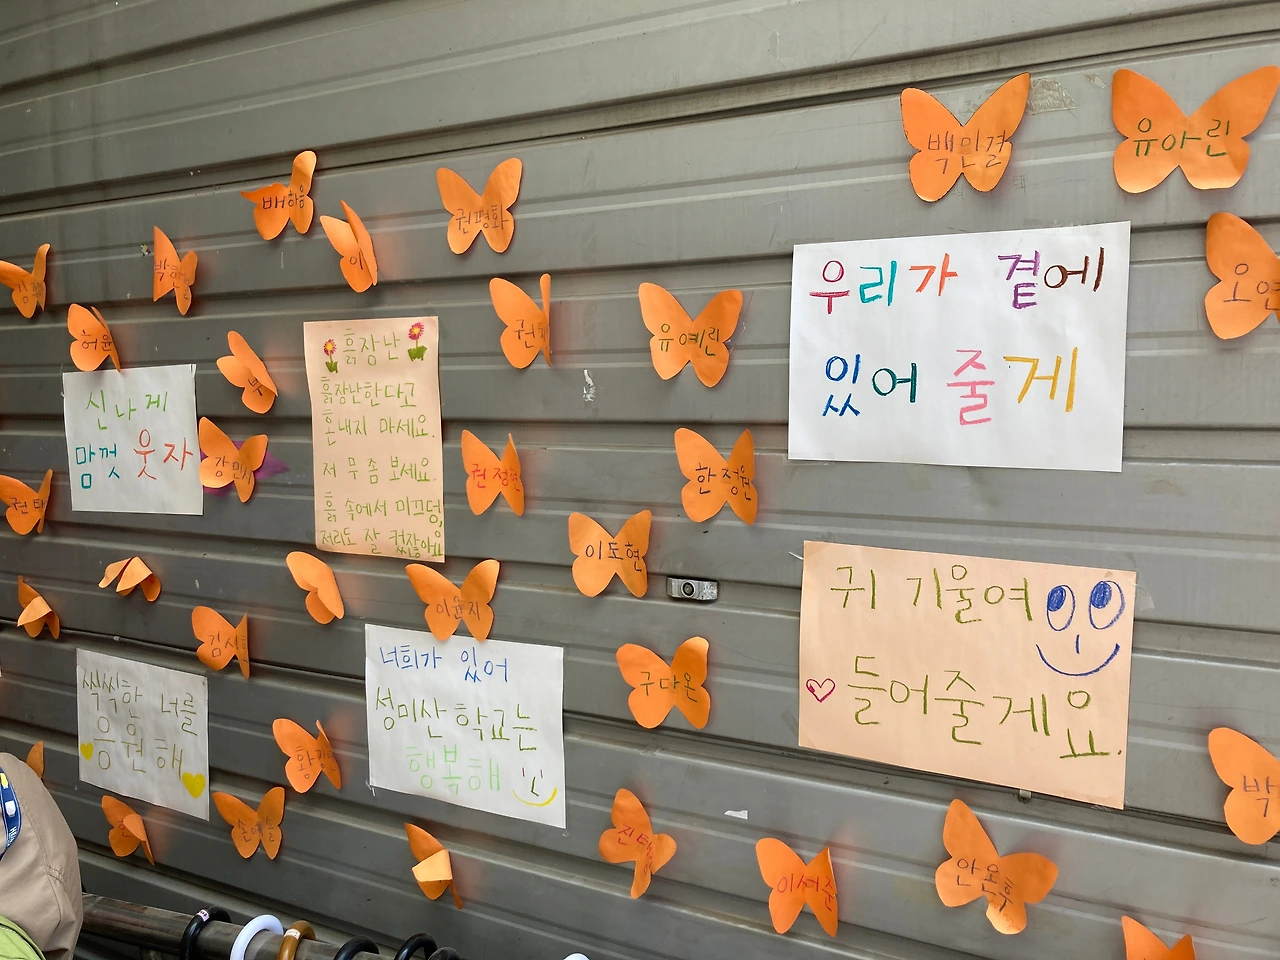 백민결
유아린
배하음
권평화
이
오연
허원
유예린
우리가 곁에
있어 줄게
흙장난
흙장난한다고
혼내지 마세요.
저 무 좀 보세요.
흙 속에서 미끄덩,
저리도 잘 컸잖아요
신나게
맘껏 웃자
강민지
권정현
한정원
이도현
이윤지
귀 기울여
들어줄게요.
너희가 있어
성미산 학교는
행복해
씩씩한 너를
응원해
구다온
박
손예슬
이서준
안온유